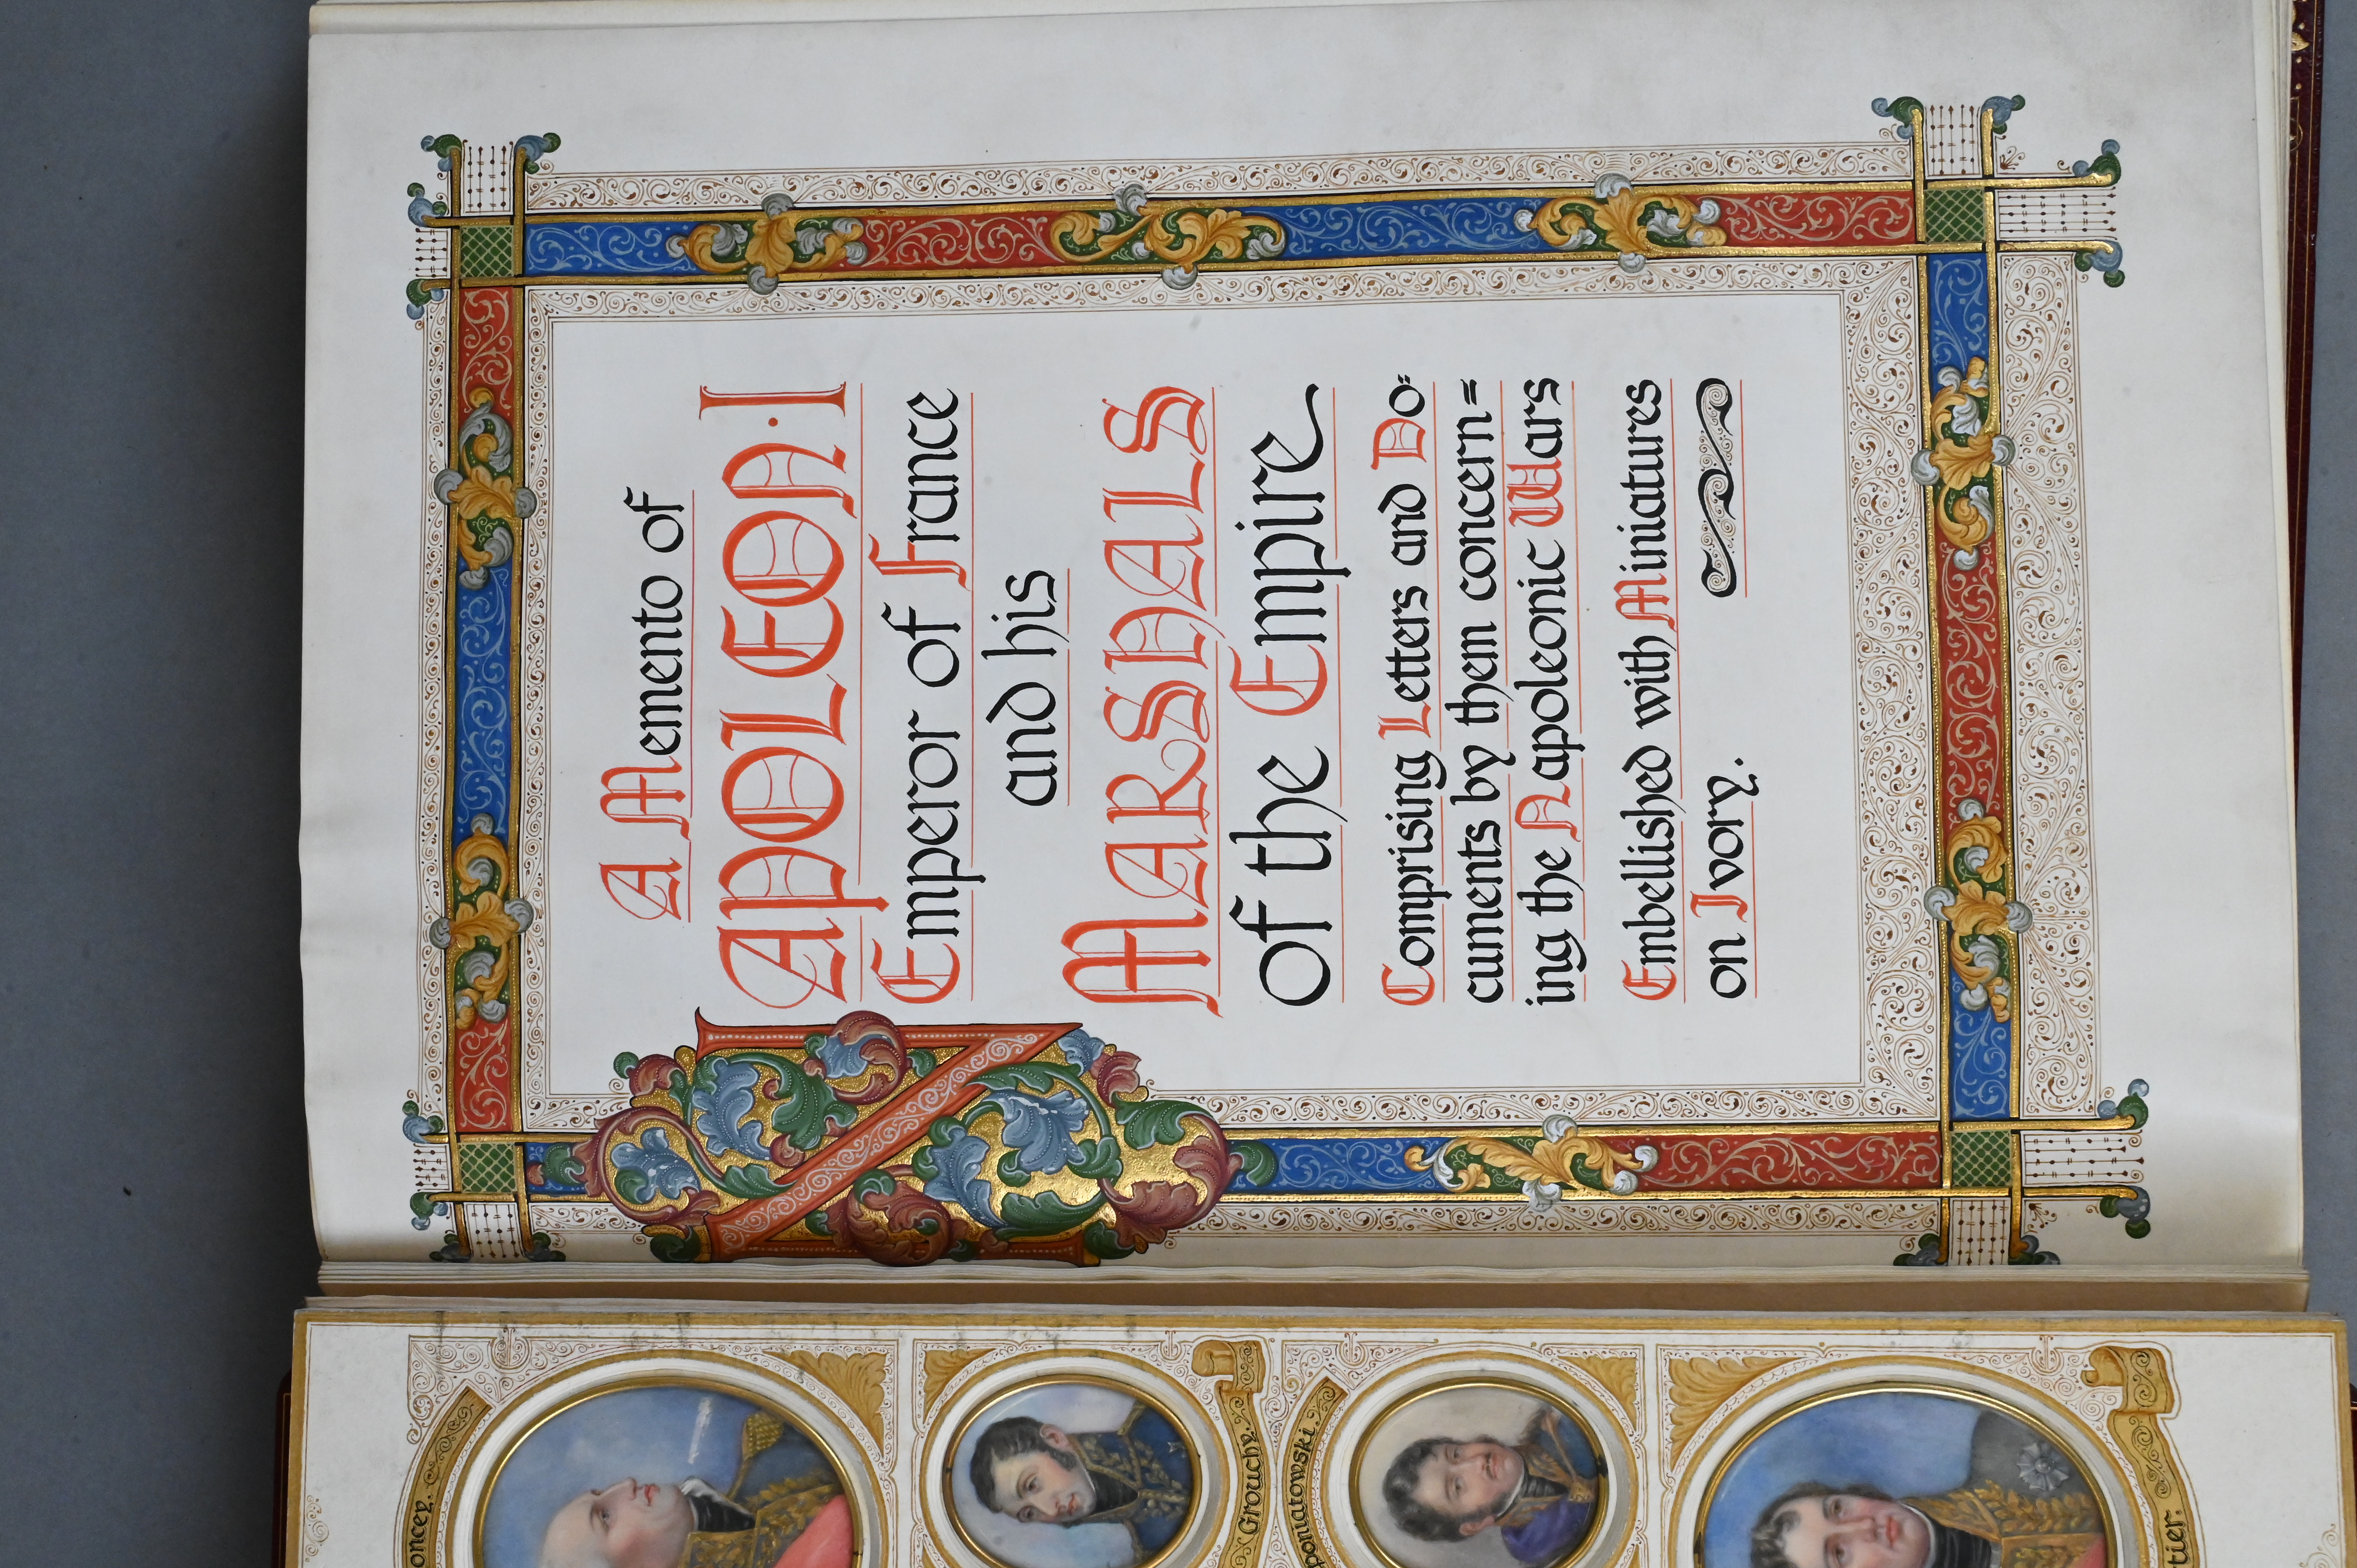 A Memento of
NAPOLEON · I
Emperor of France
and his
MARSHALS
of the Empire
Comprising Letters and Do=
cuments by them concern=
ing the Napoleonic Wars
Embellished with Miniatures
on Ivory.
oncey.
Grouchy.
poniatowski.
tier.